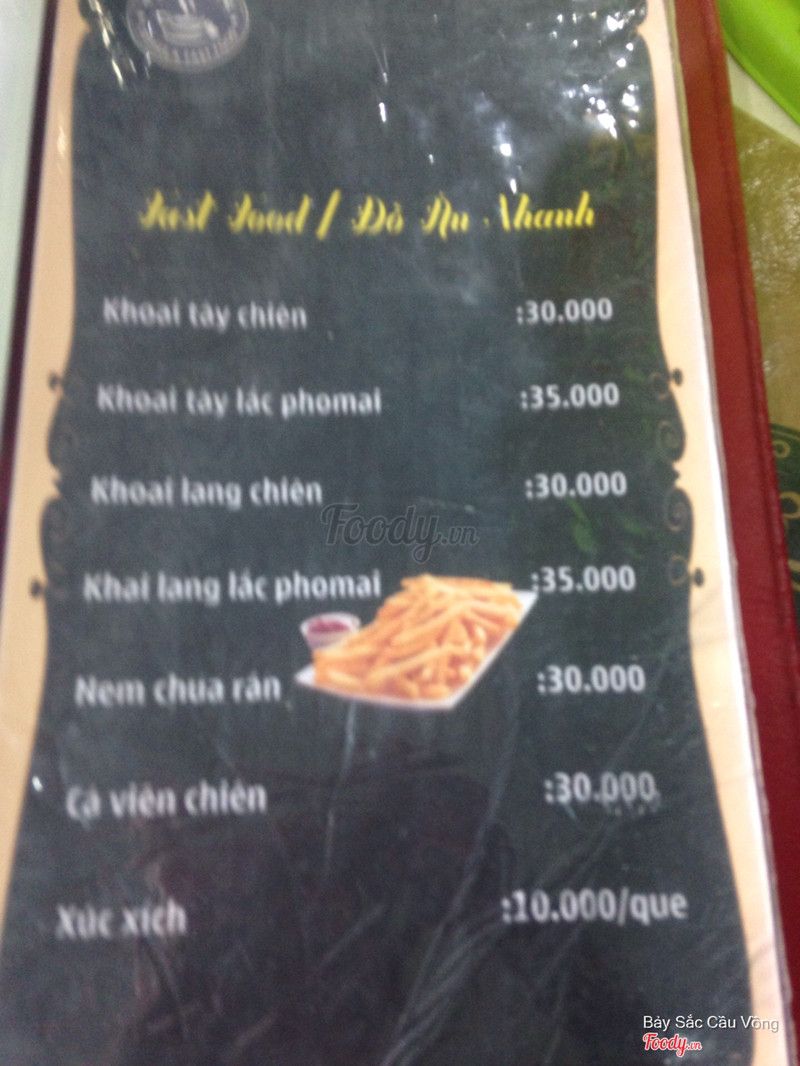 Fast Food / Đồ Ăn Nhanh
Khoai tây chiên :30.000
Khoai tây lắc phomai :35.000
Khoai lang chiên :30.000
Foody.vn
Khai lang lắc phomai :35.000
Nem chua rán :30.000
Cá viên chiên :30.000
Xúc xích :10.000/que
Bảy Sắc Cầu Vồng
Foody.vn